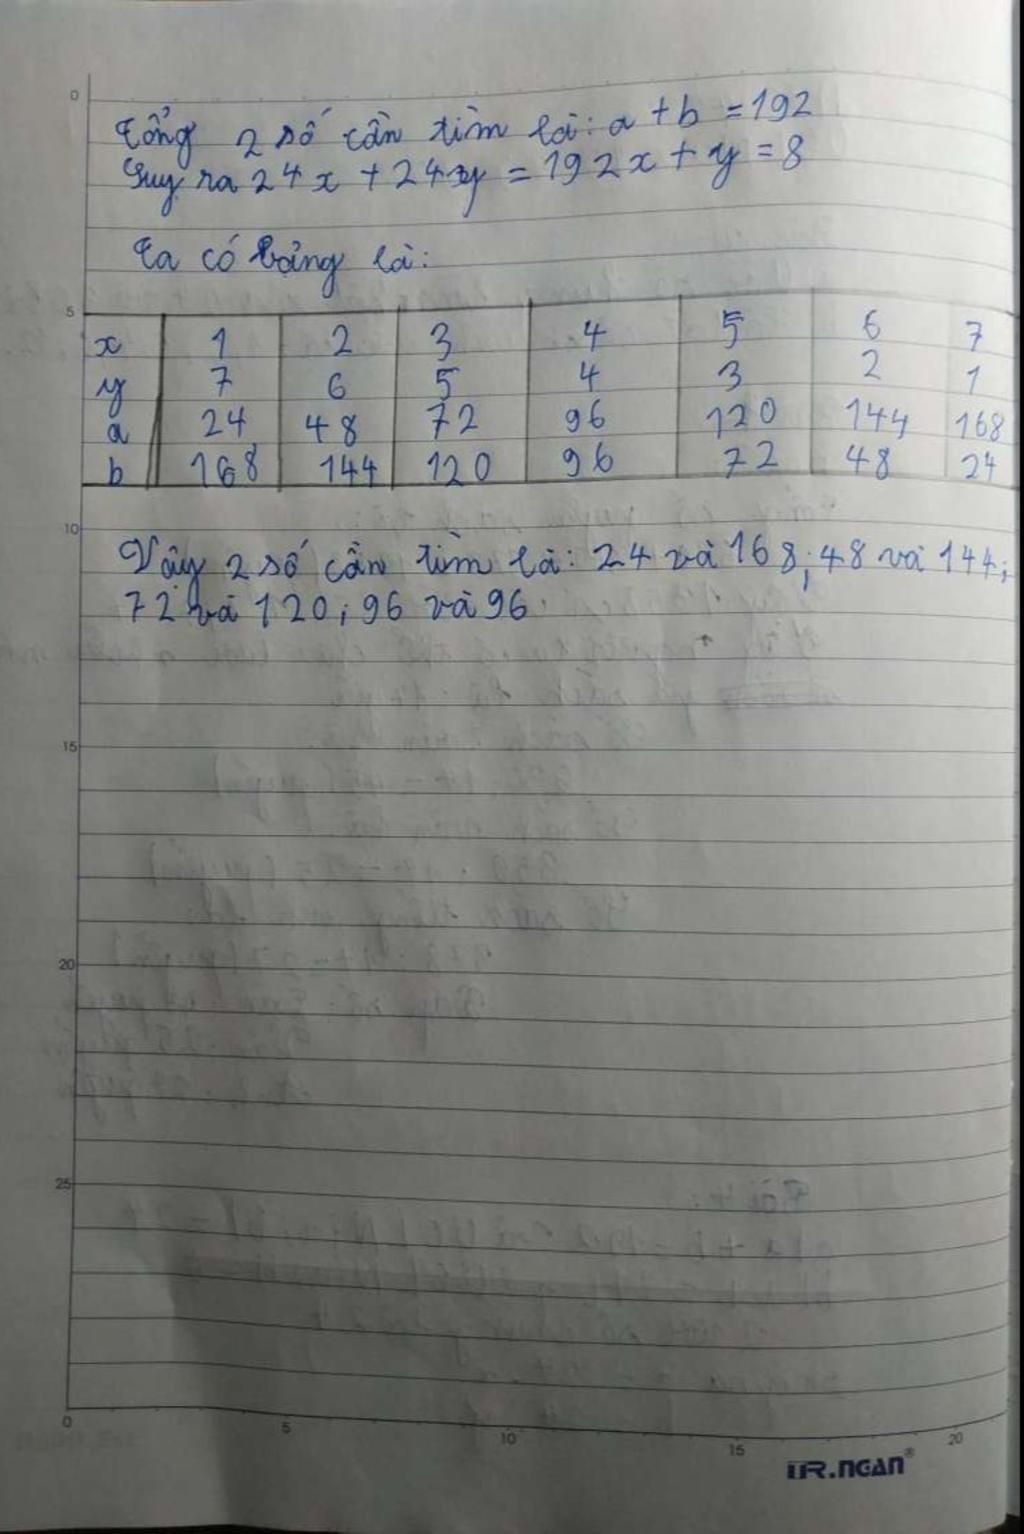 0
Tổng 2 số cần tìm là: a + b = 192
Suy ra 24x + 24y = 192x + y = 8
Ta có bảng là:
5
x 1 2 3 4 5 6 7
y 7 6 5 4 3 2 1
a 24 48 72 96 120 144 168
b 168 144 120 96 72 48 24
10
Vậy 2 số cần tìm là: 24 và 168; 48 và 144;
72 và 120; 96 và 96
15
20
25
0 5 10 15 20
TR.NGAN®